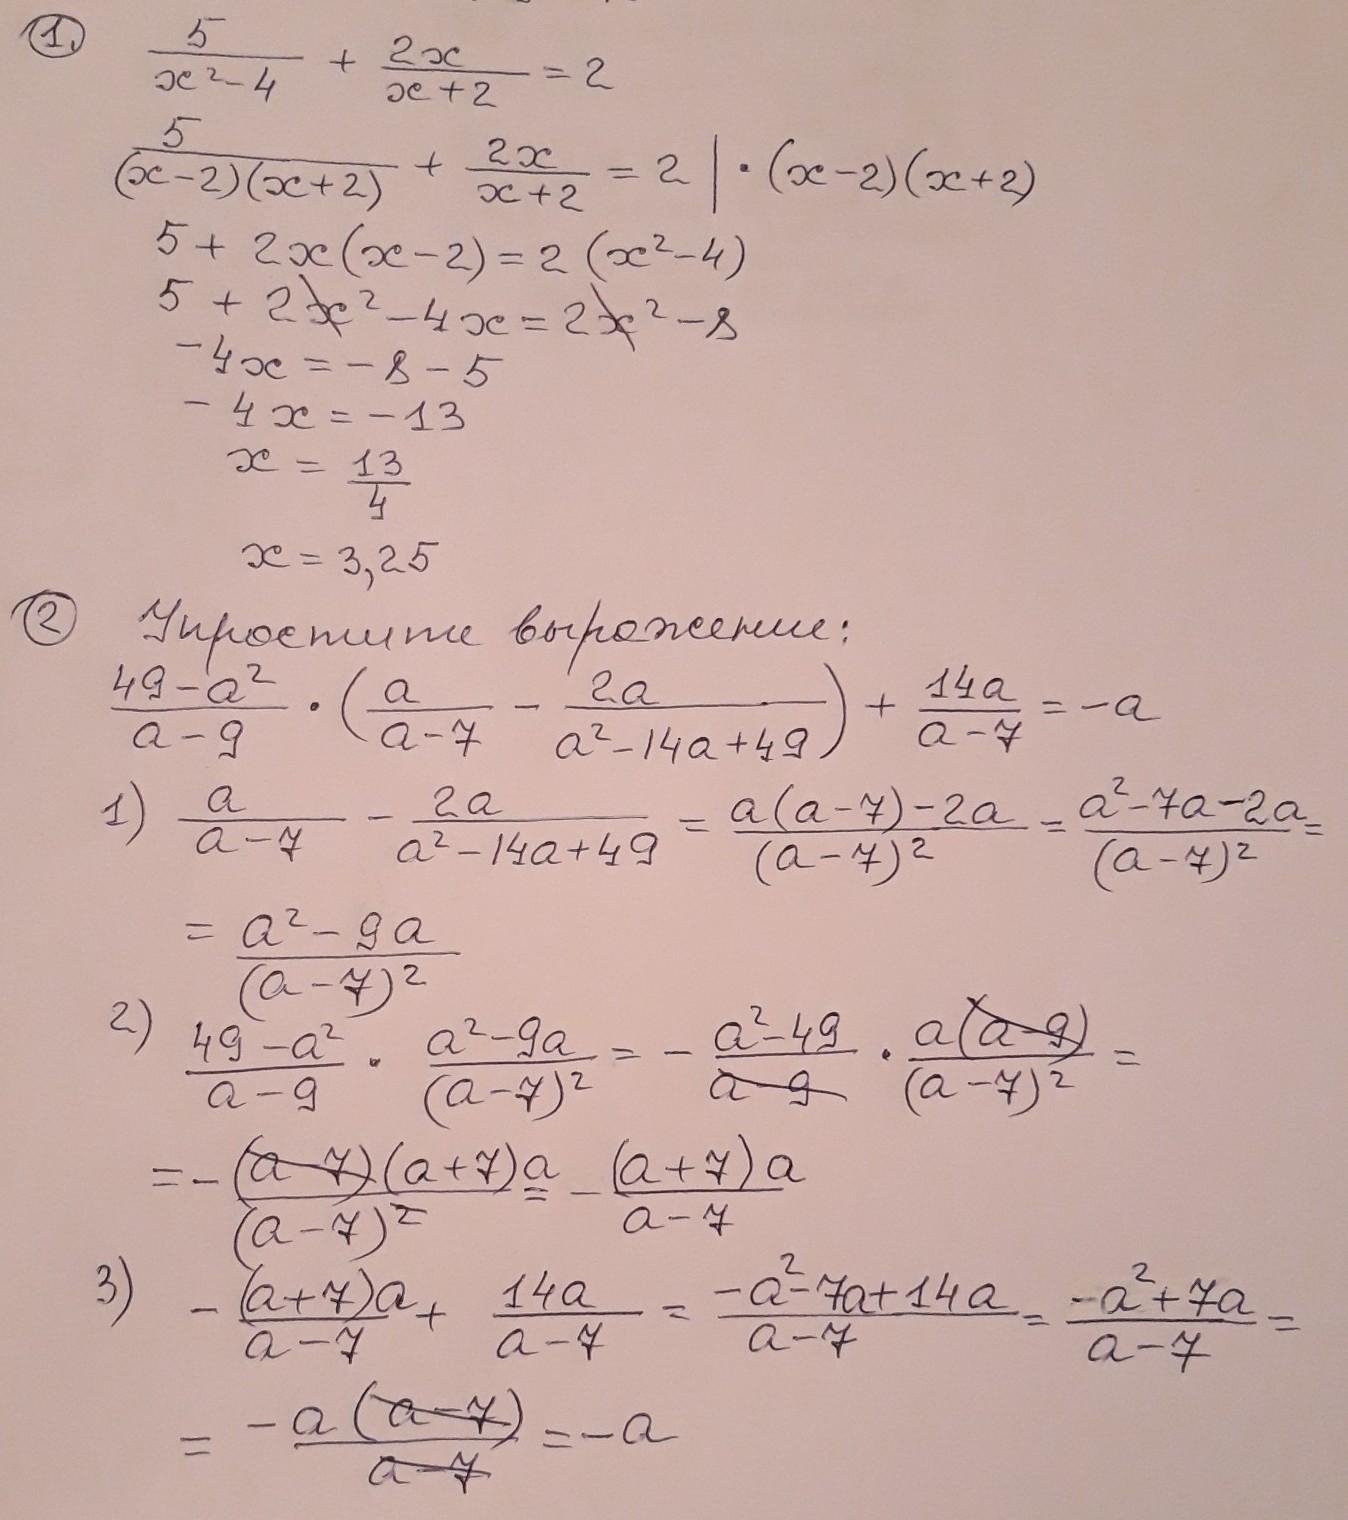 1.
5/(x²-4) + 2x/(x+2) = 2
5/((x-2)(x+2)) + 2x/(x+2) = 2 | · (x-2)(x+2)
5 + 2x(x-2) = 2(x²-4)
5 + 2x² - 4x = 2x² - 8
-4x = -8 - 5
-4x = -13
x = 13/4
x = 3,25
2 Упростите выражение:
(49-a²)/(a-9) · (a/(a-7) - 2a/(a²-14a+49)) + 14a/(a-7) = -a
1) a/(a-7) - 2a/(a²-14a+49) = (a(a-7)-2a)/(a-7)² = (a²-7a-2a)/(a-7)² =
= (a²-9a)/(a-7)²
2) (49-a²)/(a-9) · (a²-9a)/(a-7)² = - (a²-49)/(a-9) · a(a-9)/(a-7)² =
= - (a-7)(a+7)a/(a-7)² = - (a+7)a/(a-7)
3) - (a+7)a/(a-7) + 14a/(a-7) = (-a²-7a+14a)/(a-7) = (-a²+7a)/(a-7) =
= -a(a-7)/(a-7) = -a